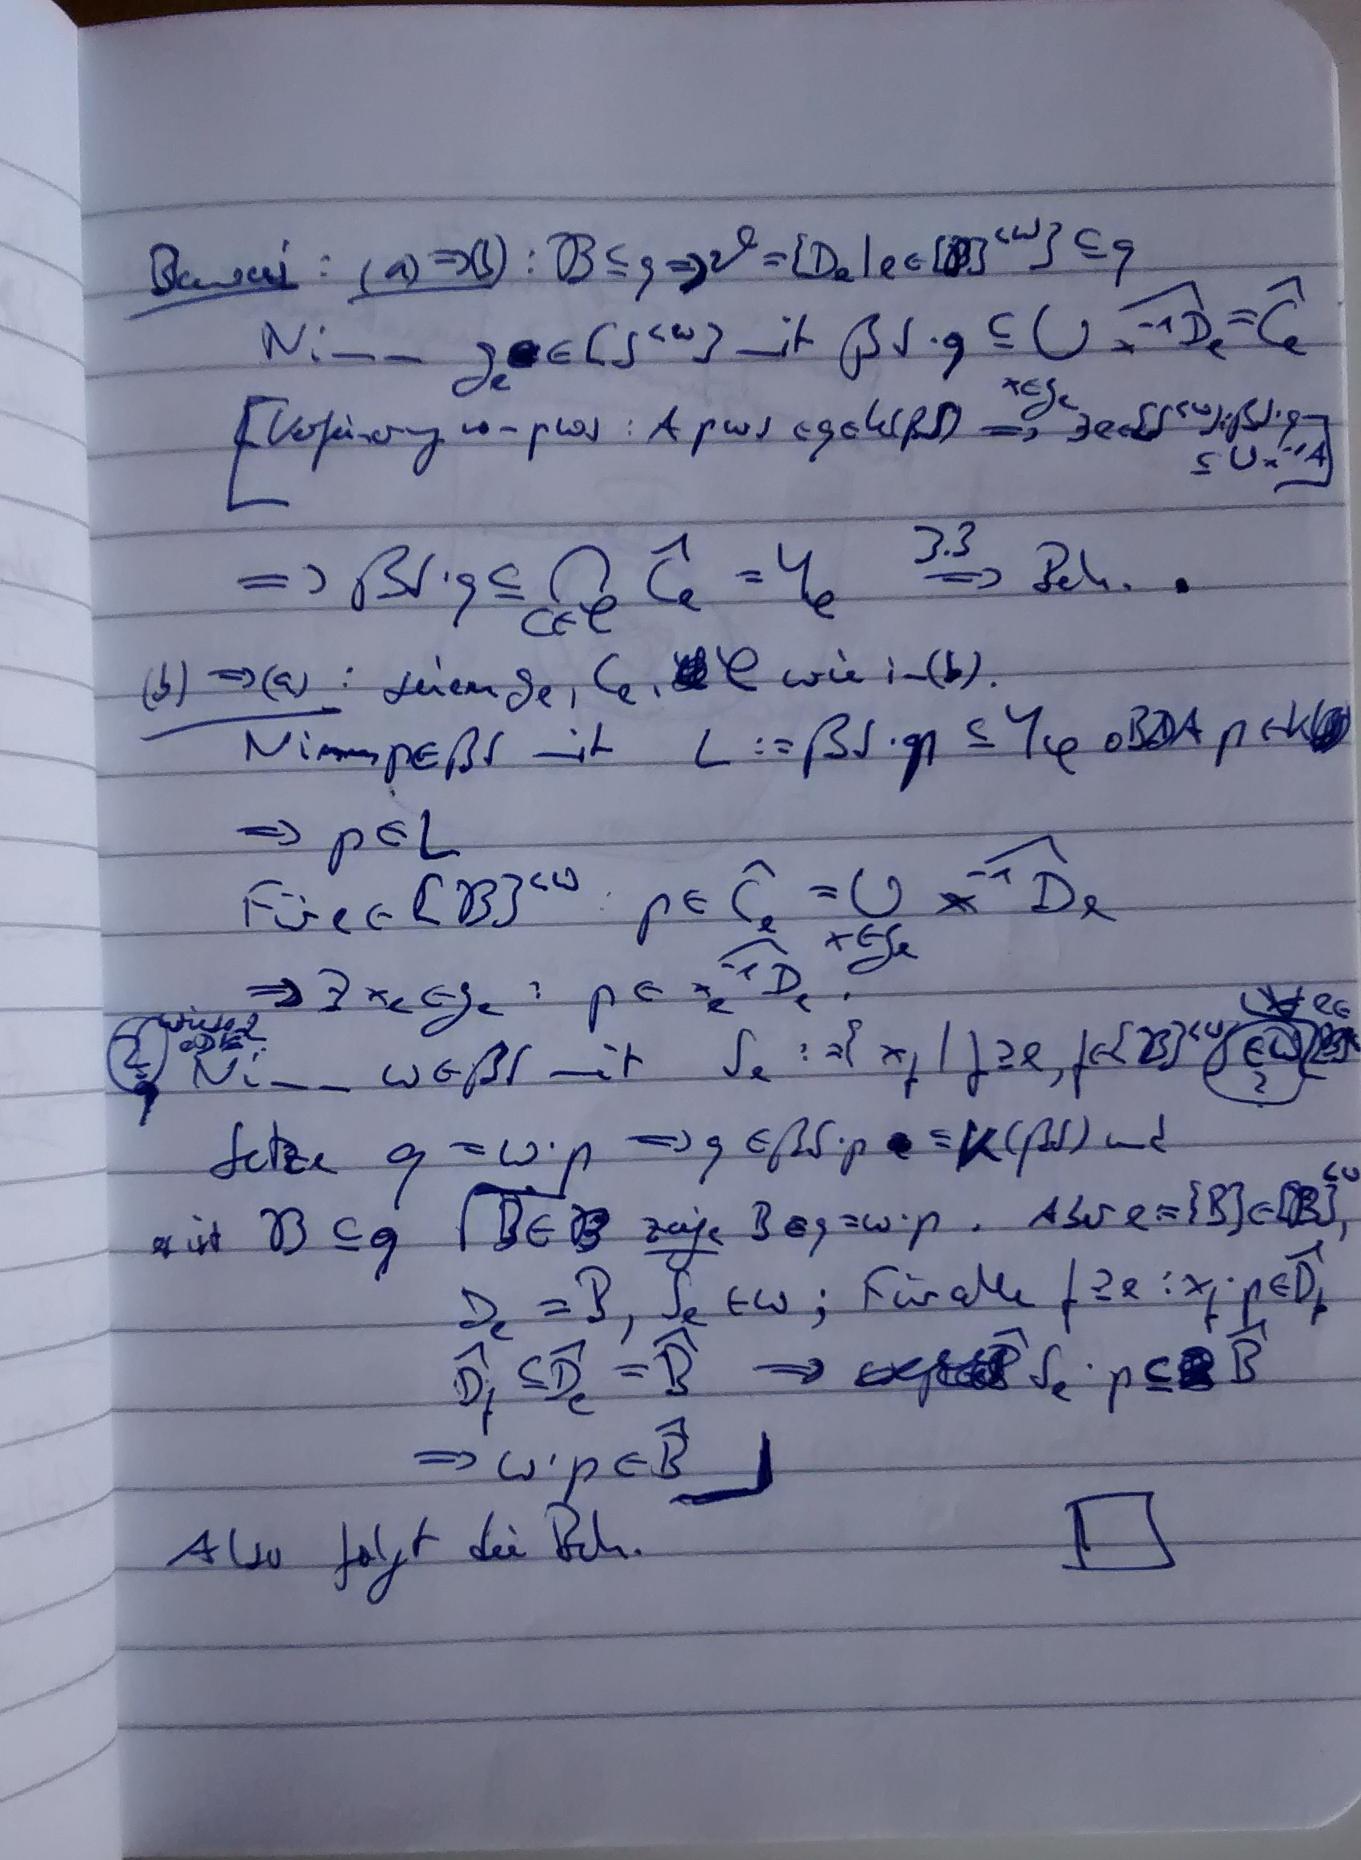 Beweis: (a) ⇒ (b): 𝓑 ⊆ q ⇒ 𝒟 = {D_e | e ∈ [𝓑]^{<ω}} ⊆ q
Nimm g_e ∈ [S^{<ω}] mit βS·q ⊆ ⋃_{x∈g_e} \widehat{x^{-1}D_e} = Ĉ_e
[ pws: A pws ∈ q ∈ K(βS) ⇒ ∃e∈[S^{<ω}]: βS·q ⊆ ⋃x^{-1}A]
⇒ βS·q ⊆ ⋂_{C∈𝒞} Ĉ_e = Y_𝒞 ⇒^{3.3} Beh. .
(b) ⇒ (a): seien g_e, C_e, 𝒞 wie in (b).
Nimm p∈βS mit L := βS·p ⊆ Y_𝒞 OBDA p ∈ K
⇒ p ∈ L
Für e ∈ [𝓑]^{<ω} : p ∈ Ĉ_e = ⋃_{x∈g_e} \widehat{x^{-1}D_e}
⇒ ∃ x_e ∈ g_e : p ∈ \widehat{x_e^{-1}D_e}.
? wieso OBdA
Nimm w ∈ βS mit S_e := {x_f | f ⊇ e, f ∈ [𝓑]^{<ω}} ∈ w ? ∀ e ∈
Setze q = w·p ⇒ q ∈ βS·p = K(βS) und
es ist 𝓑 ⊆ q ⌈B ∈ 𝓑 zeige B ∈ q = w·p. Also e = {B} ∈ [𝓑]^{<ω},
D_e = B, S_e ∈ w; Für alle f ⊇ e : x_f·p ∈ D̂_f
D̂_f ⊆ D̂_e = B̂ ⇒ S_e·p ⊆ B̂
⇒ w·p ∈ B̂ ⌋
Also folgt die Beh. □